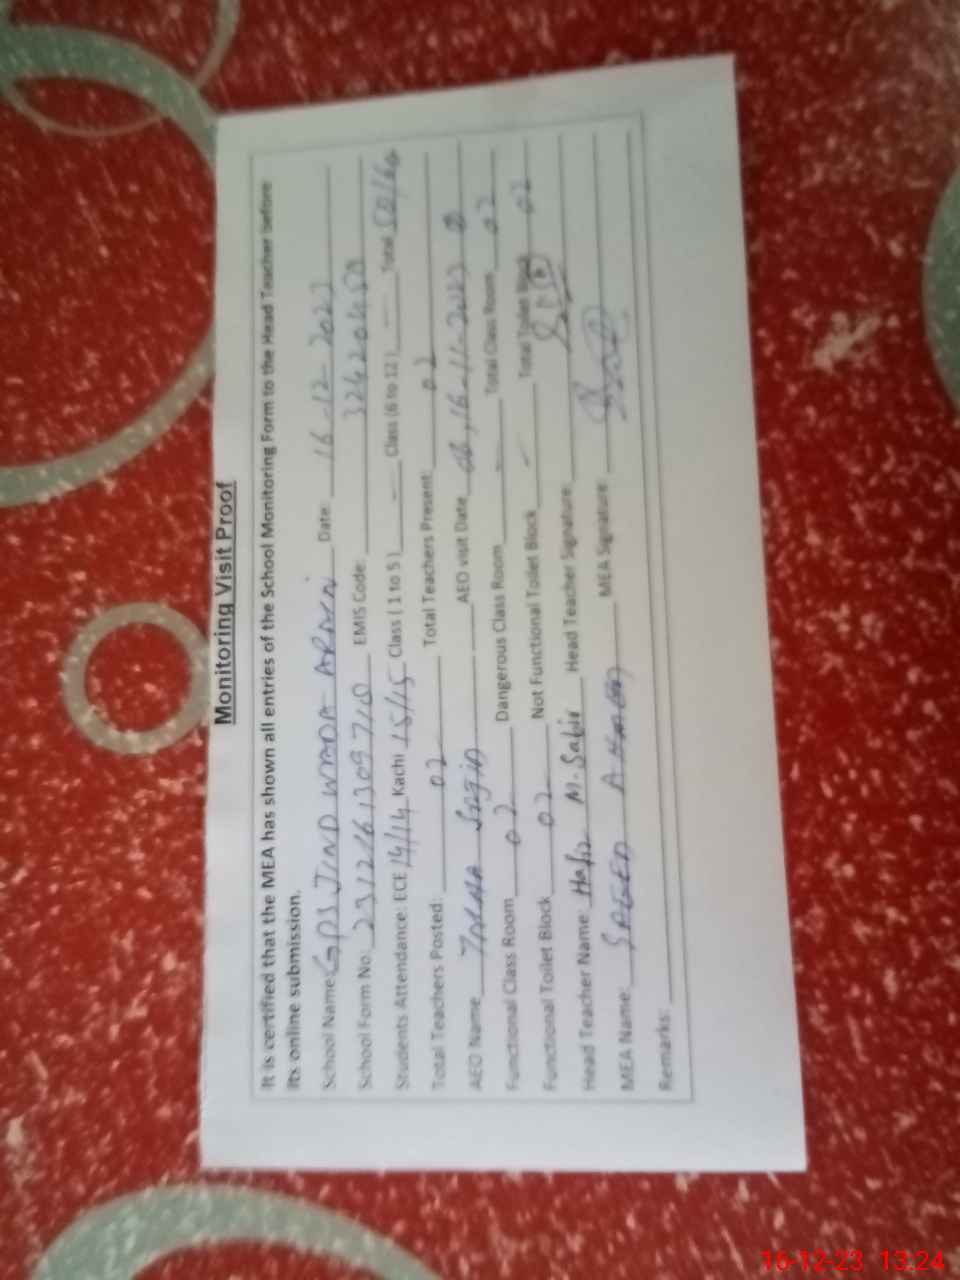 Monitoring Visit Proof
It is certified that the MEA has shown all entries of the School Monitoring Form to the Head Teacher before
its online submission.
School Name: GPS JIND WADA ARAIN Date: 16-12-2023
School Form No: EMIS Code:
Students Attendance: ECE 14/14 Kachi 15/15 Class ( 1 to 5 ) — Class (6 to 12) — Total
Total Teachers Posted: 02 Total Teachers Present: 02
AEO Name AEO visit Date 16-11-2023
Functional Class Room 02 Dangerous Class Room — Total Class Room 02
Functional Toilet Block 02 Not Functional Toilet Block — Total Toilet Block 02
Head Teacher Name: Hafiz M. Sabir Head Teacher Signature:
MEA Name: SAEED AHMED MEA Signature:
Remarks:
16-12-23 13:24